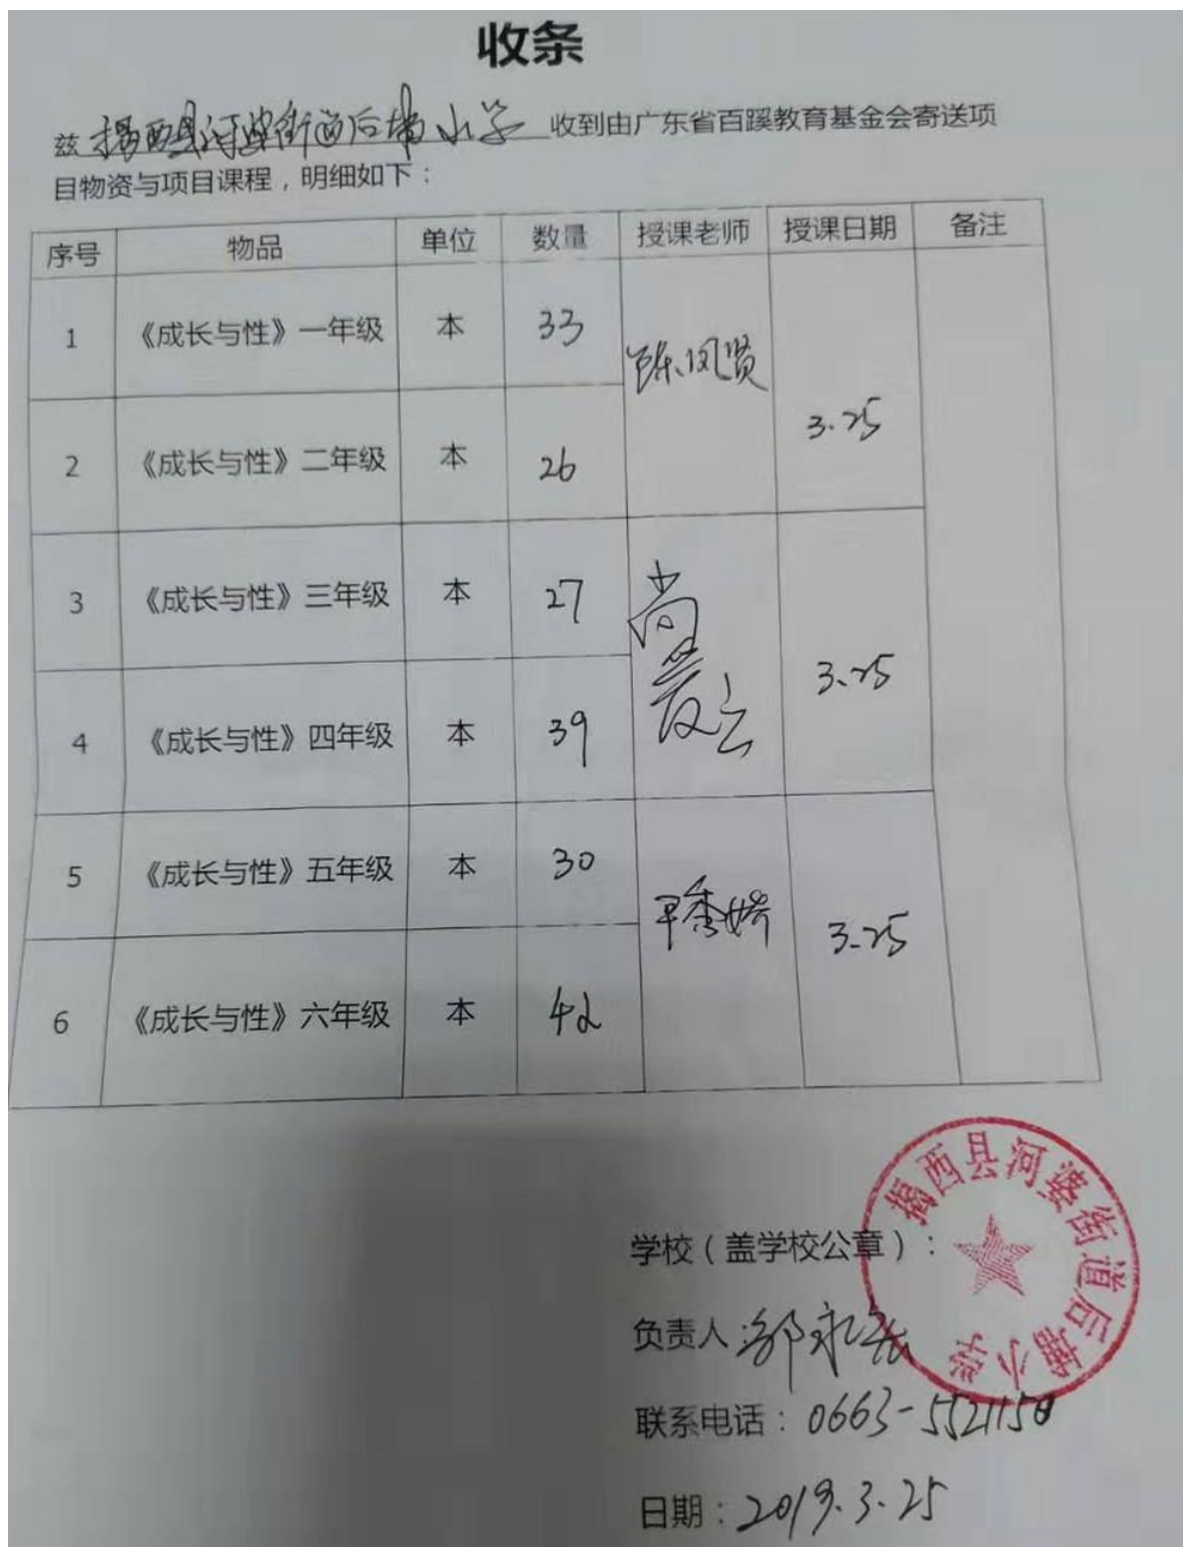 收条
兹 揭西县河婆街道后埔小学 收到由广东省百蹊教育基金会寄送项
目物资与项目课程，明细如下：
序号 物品 单位 数量 授课老师 授课日期 备注
1 《成长与性》一年级 本 33 陈凤贤 3.25
2 《成长与性》二年级 本 26
3 《成长与性》三年级 本 27 尚爱云 3.25
4 《成长与性》四年级 本 39
5 《成长与性》五年级 本 30 秀娇 3.25
6 《成长与性》六年级 本 42
学校（盖学校公章）：
揭西县河婆街道后埔小学
负责人：邹永
联系电话：0663-5521150
日期：2019.3.25